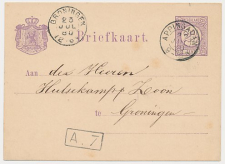 GRONINGEN
23
JUL
80
Briefkaart.
APPINGEDAM
Aan den Heeren
Hulsekamp & Zoon
te Groningen
A.7